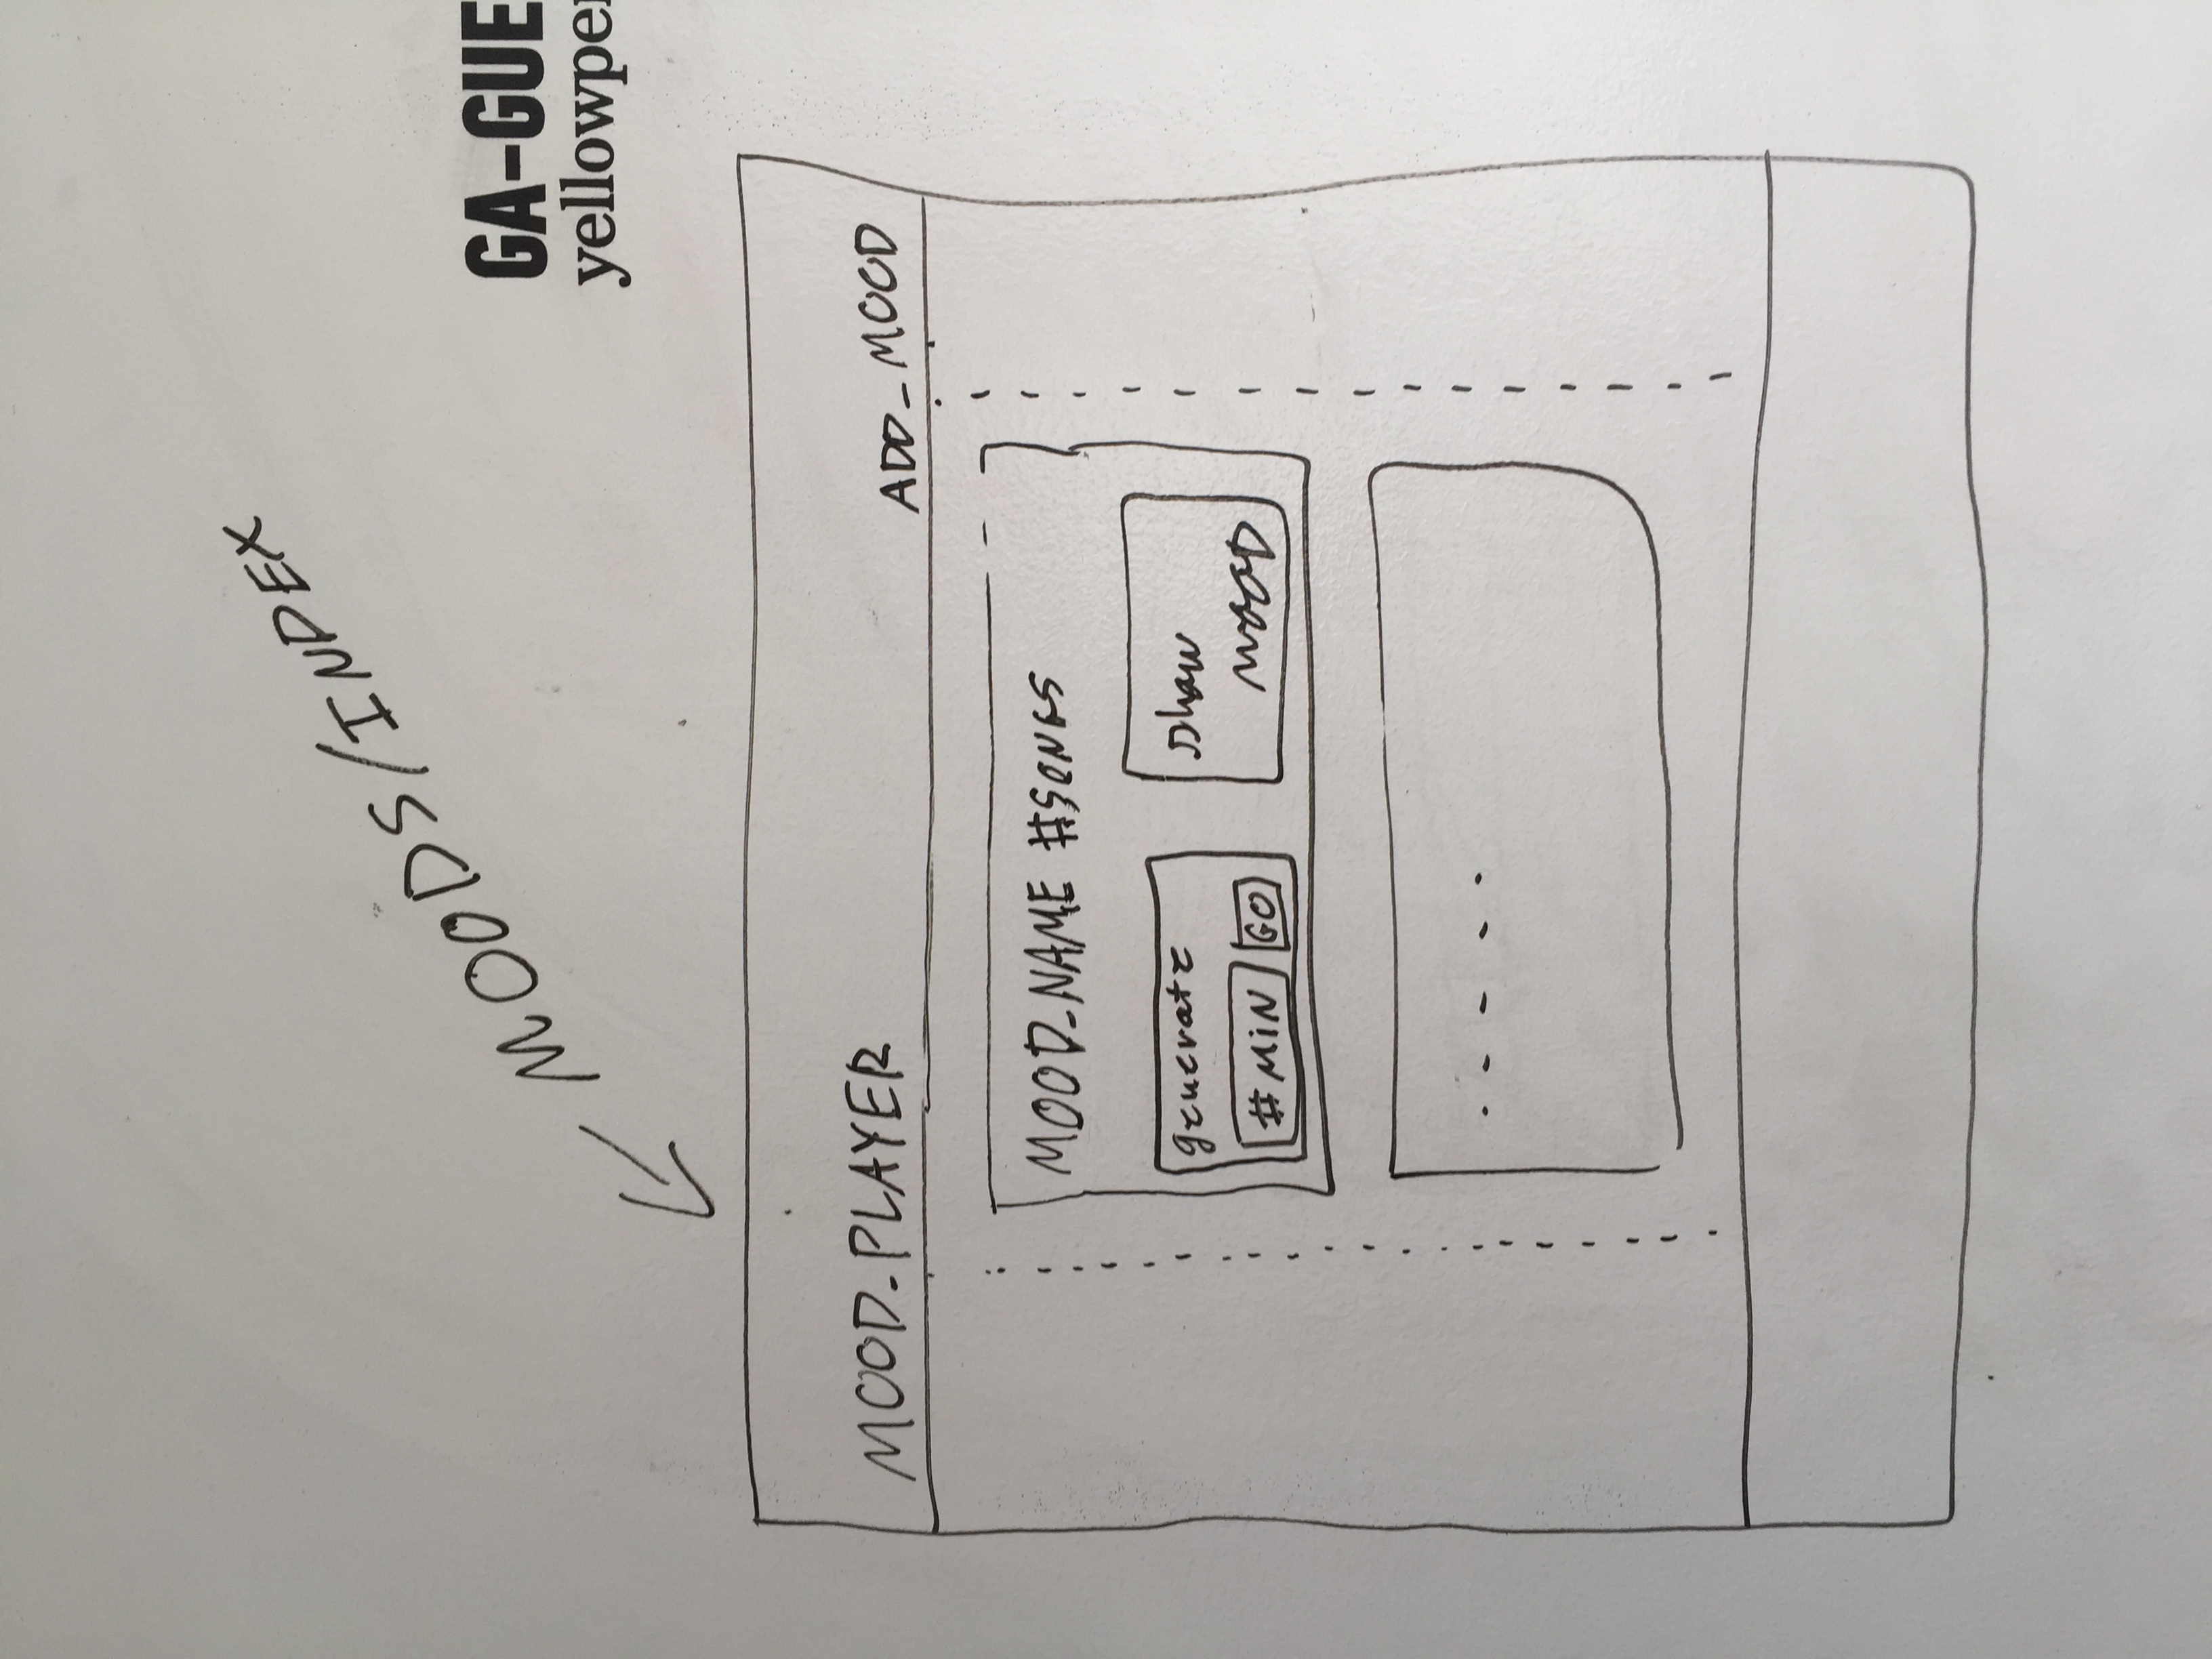 MOODS/INDEX
GA-GUE
yellowpe
MOOD_PLAYER
ADD_MOOD
MOOD_NAME #SONGS
generate
#MIN GO
show
MOOD
. . - - .